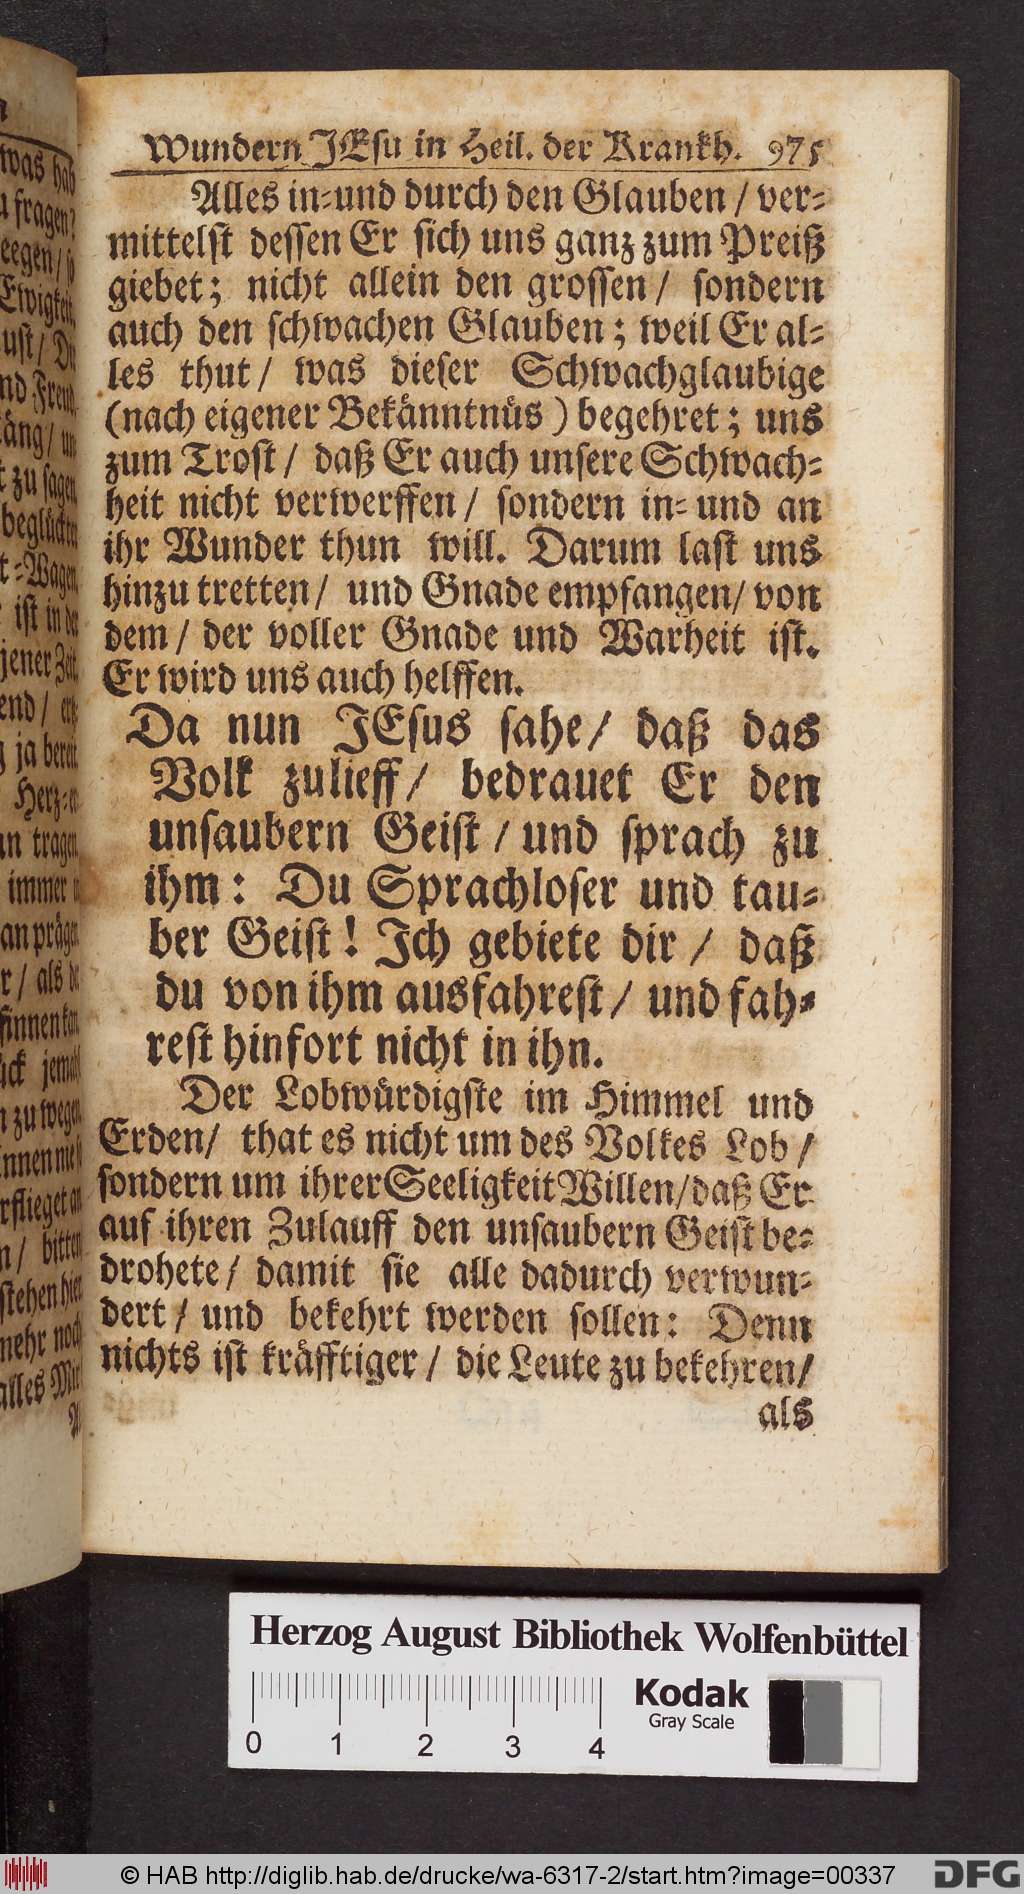 Wundern JEsu in Heil. der Krankh. 975
Alles in-und durch den Glauben / ver-
mittelst dessen Er sich uns ganz zum Preiß
giebet; nicht allein den grossen / sondern
auch den schwachen Glauben; weil Er al-
les thut / was dieser Schwachglaubige
(nach eigener Bekänntnüs) begehret; uns
zum Trost / daß Er auch unsere Schwach-
heit nicht verwerffen / sondern in- und an
ihr Wunder thun will. Darum last uns
hinzu tretten / und Gnade empfangen / von
dem / der voller Gnade und Warheit ist.
Er wird uns auch helffen.
Da nun JEsus sahe / daß das
Volk zulieff / bedrauet Er den
unsaubern Geist / und sprach zu
ihm: Du Sprachloser und tau-
ber Geist! Ich gebiete dir / daß
du von ihm ausfahrest / und fah-
rest hinfort nicht in ihn.
Der Lobwürdigste im Himmel und
Erden / that es nicht um des Volkes Lob /
sondern um ihrer Seeligkeit Willen / daß Er
auf ihren Zulauff den unsaubern Geist be-
drohete / damit sie alle dadurch verwun-
dert / und bekehrt werden sollen: Denn
nichts ist kräfftiger / die Leute zu bekehren /
als
was hab
fragen?
Ewigkeit,
ust / Di
nd Freud,
zu sagen
t-Wagen
ist in der
jener Zeit,
ja bereit
Herz-
tragen
immer
r / als
jemahl
zu wegen
n / bitten
stehen hier
mehr noch
alles
Herzog August Bibliothek Wolfenbüttel
0 1 2 3 4
Kodak
Gray Scale
© HAB http://diglib.hab.de/drucke/wa-6317-2/start.htm?image=00337
DFG